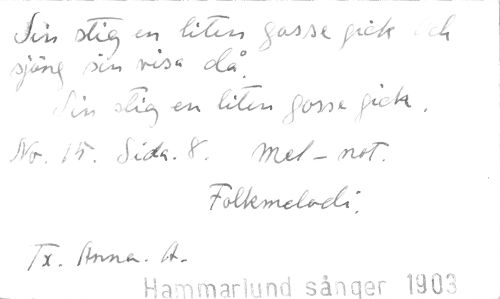 Sin stig en liten gosse gick och
sjöng sin visa då.
Sin stig en liten gosse gick.
No. 15. Sida. 8. Mel-not.
Folkmelodi.
Tx. Anna. A.
Hammarlund sånger 1903